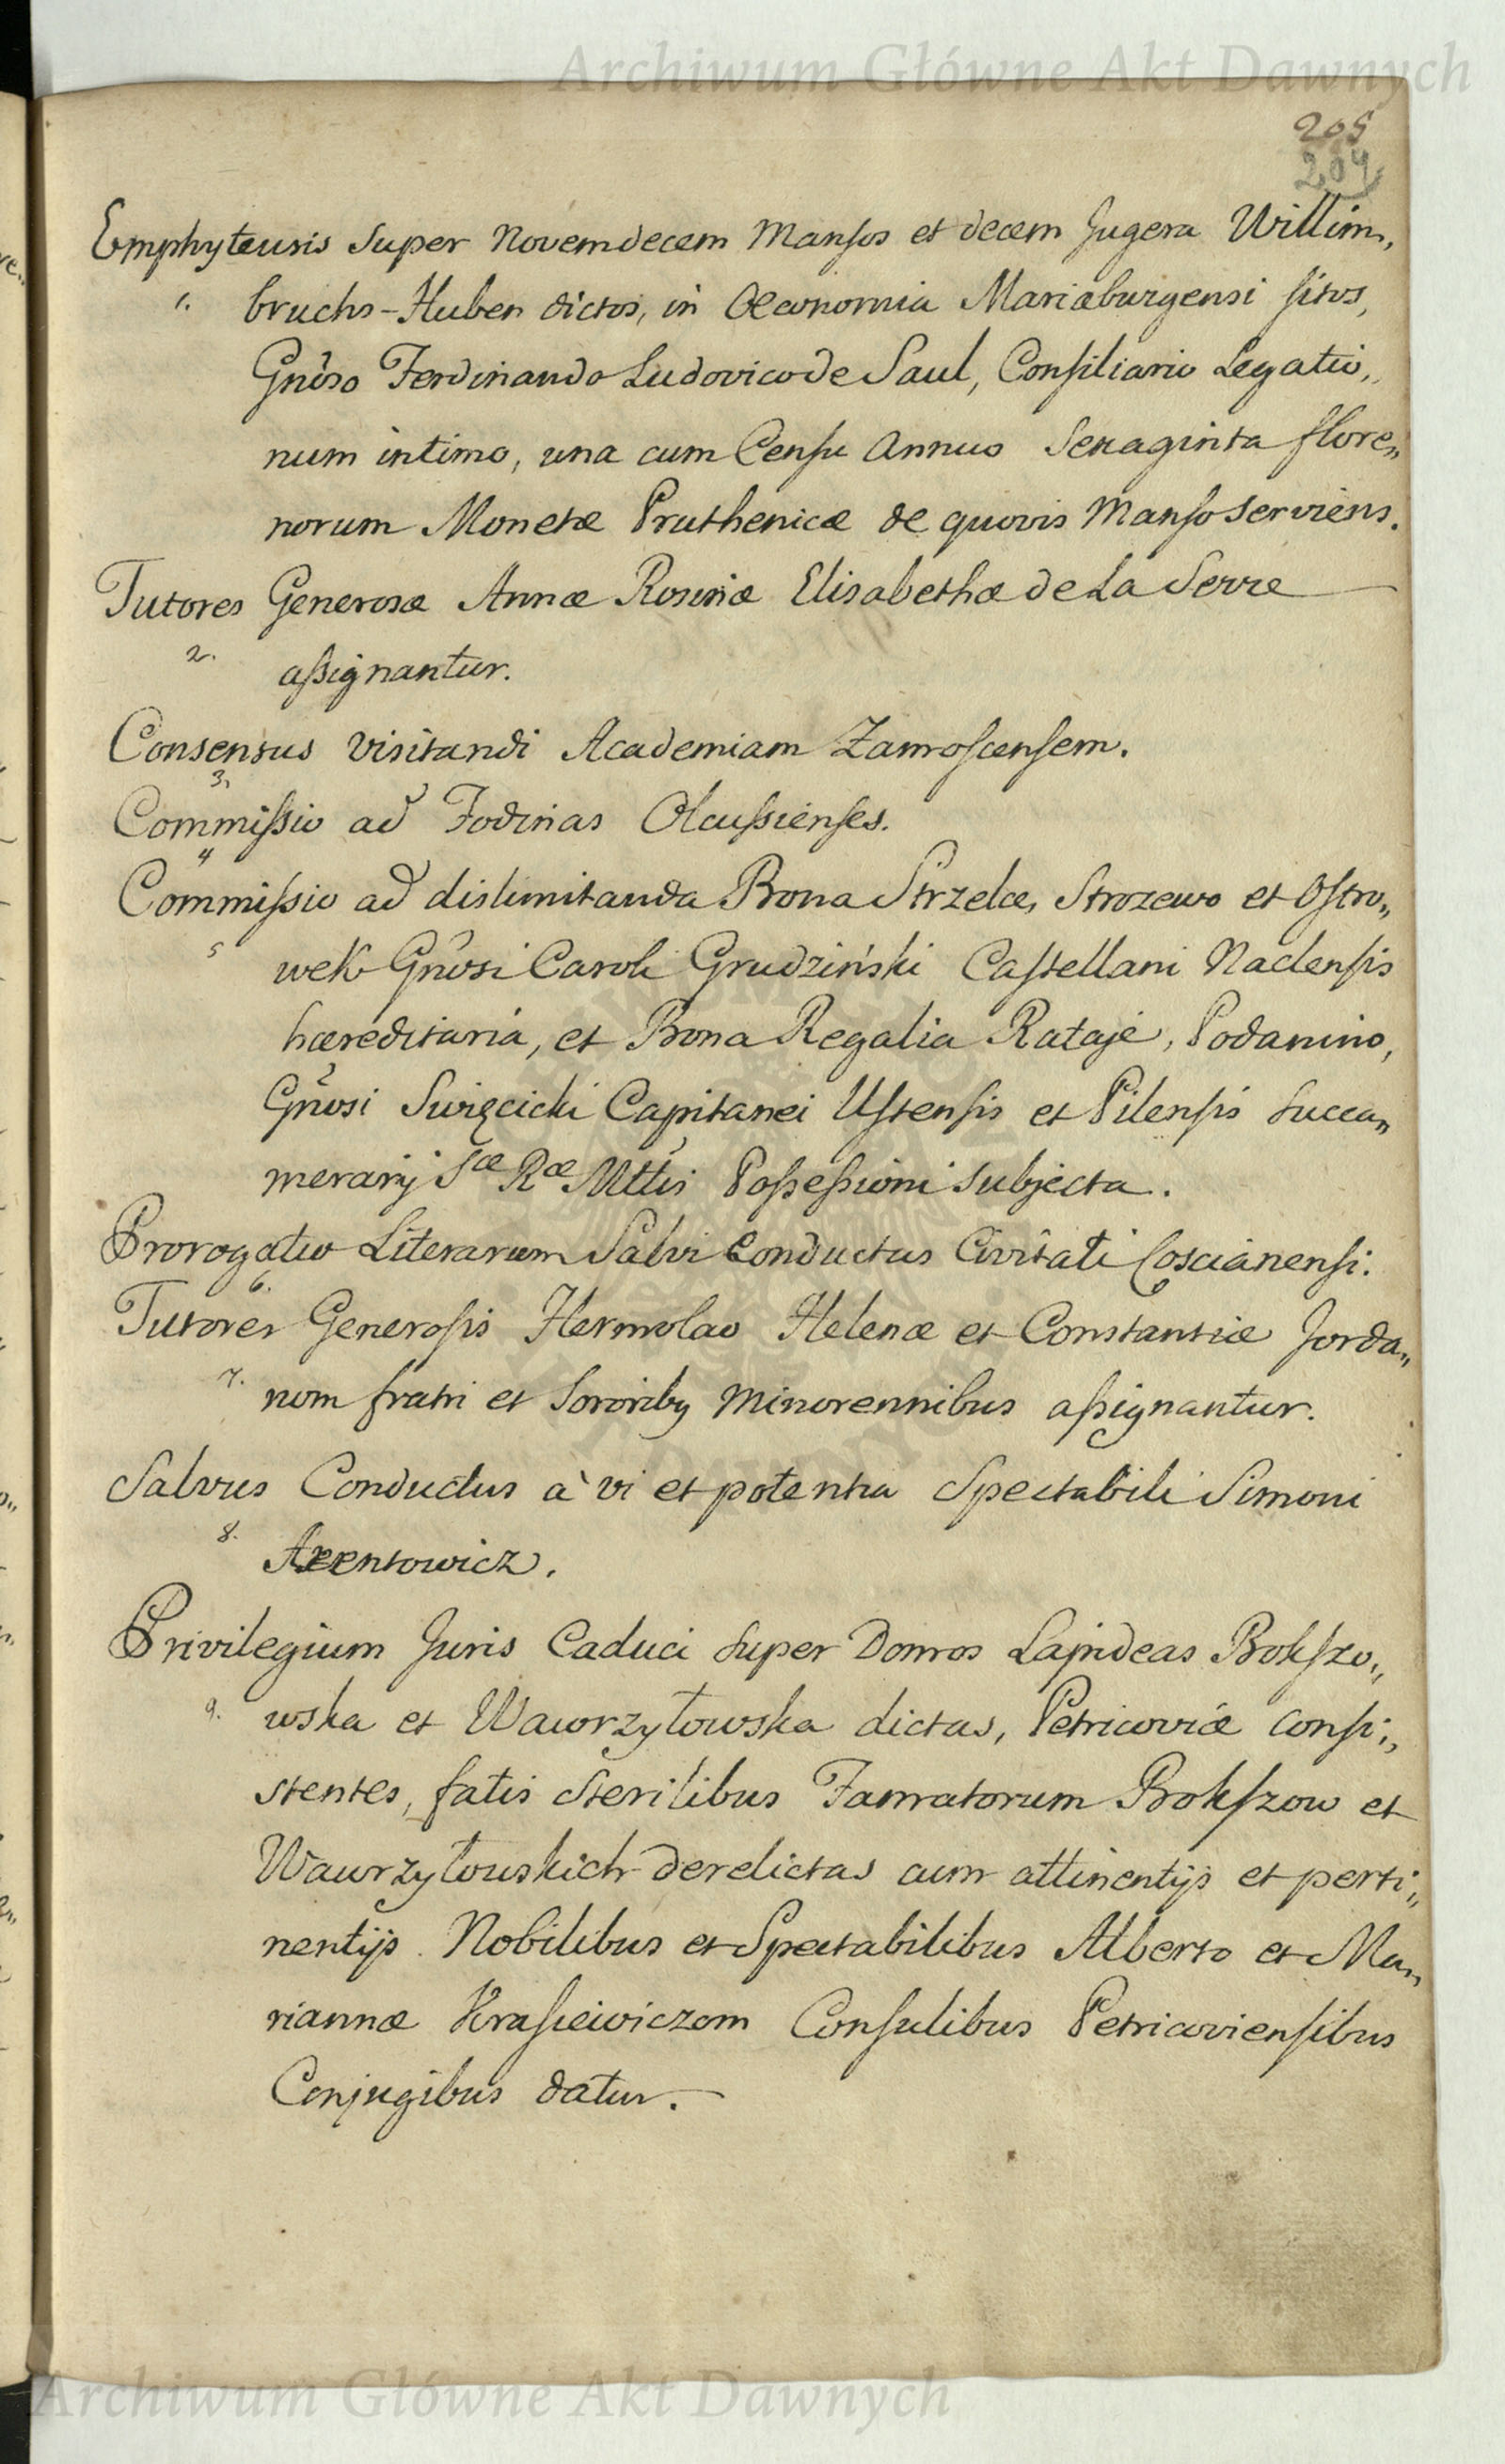 Archiwum Główne Akt Dawnych
205
204
Emphyteusis Super Novemdecem Mansos et decem Jugera Willim„
1. bruchs-Huben dictos, in Oeconomia Mariæburgensi sitos,
Gnôso Ferdinando Ludovico de Saul, Consiliario Legatio„
num intimo, una cum Censu Annuo Sexaginta flore„
norum Monetæ Pruthenicæ de quovis Manso serviens.
Tutores Generosæ Annæ Rosinæ Elisabethæ de La Serre
2. assignantur.
Consensus visitandi Academiam Zamoscensem.
3.
Commissio ad Fodinas Olcussienses.
4
Commissio ad dislimitanda Bona Strzelce, Strozewo et Ostro„
5 wek Gnôsi Caroli Grudziński Castellani Naclensis
hæreditaria, et Bona Regalia Rataje, Podanino,
Gnôsi Swięcicki Capitanei Ustensis et Pilensis Succa„
merarij Sæ Ræ Mttis Possessioni subjecta.
Prorogatio Literarum Salvi Conductus Civitati Coscianensi.
6.
Tutores Generosis Hermolao Helenæ et Constantiæ Jorda„
7. nom fratri et Sororiby minorennibus assignantur.
Salvus Conductus à vi et potentia Spectabili Simoni
8. Arentowicz.
Privilegium Juris Caduci super Domos Lapideas Bokszo„
9. wska et Wawrzytowska dictas, Petricoviæ consi„
stentes, fatis sterilibus Famatorum Bokszow et
Wawrzytowskich derelictas cum attinentijs et perti„
nentijs Nobilibus et Spectabilibus Alberto et Ma„
riannæ Krasiewiczom Consulibus Petricoviensibus
Conjugibus datur.
Archiwum Główne Akt Dawnych